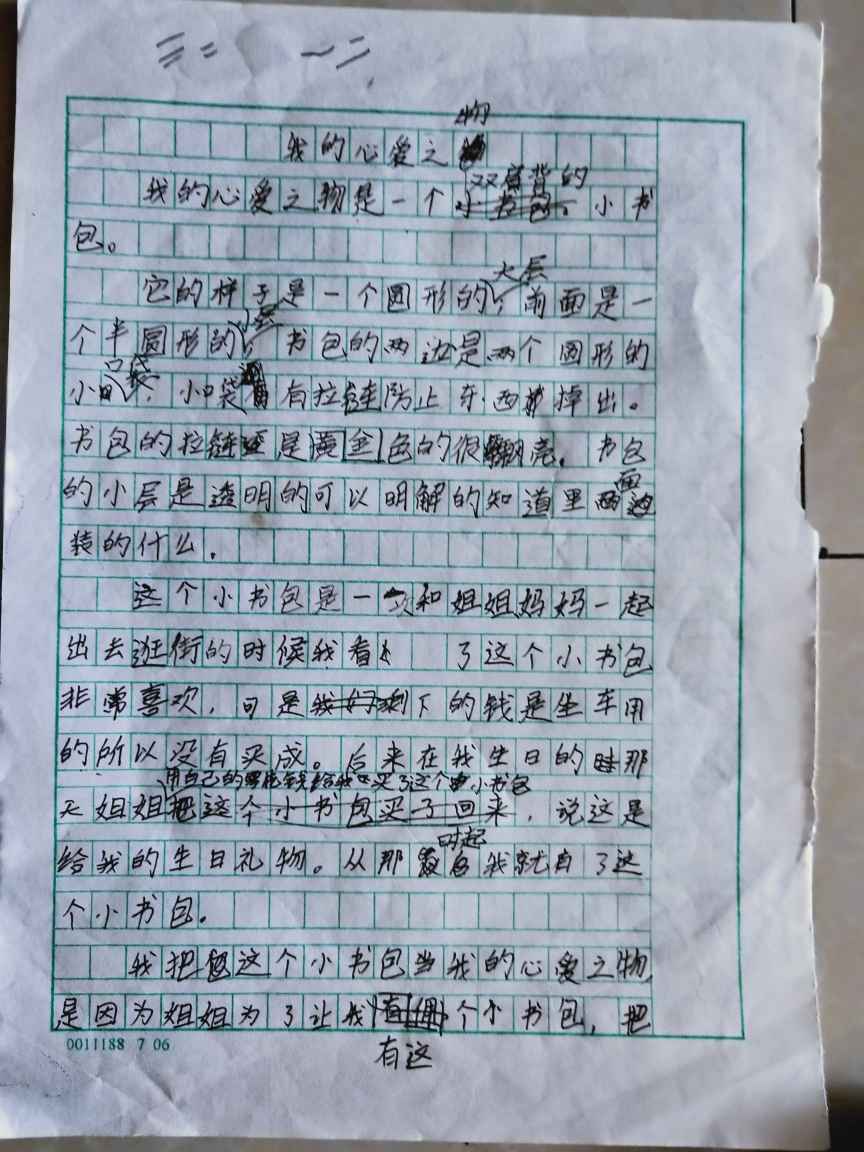 三二 一二
我的心爱之物
我的心爱之物是一个双肩背的小书
包。
它的样子是一个圆形的大层，前面是一
个半圆形的小层，书包的两边是两个圆形的
小口袋，小口袋有拉链防止东西掉出。
书包的拉链是黄金色的很亮。书包
的小层是透明的可以明解的知道里面
装的什么.
这个小书包是一次和姐姐妈妈一起
出去逛街的时候我看上了这个小书包
非常喜欢，可是剩下的钱是坐车用
的所以没有买成。后来在我生日的那
天姐姐用自己的零花钱给我买了这个小书包，说这是
给我的生日礼物。从那时起我就有了这
个小书包。
我把这个小书包当我的心爱之物
是因为姐姐为了让我有这个小书包，把
0011188 7 06